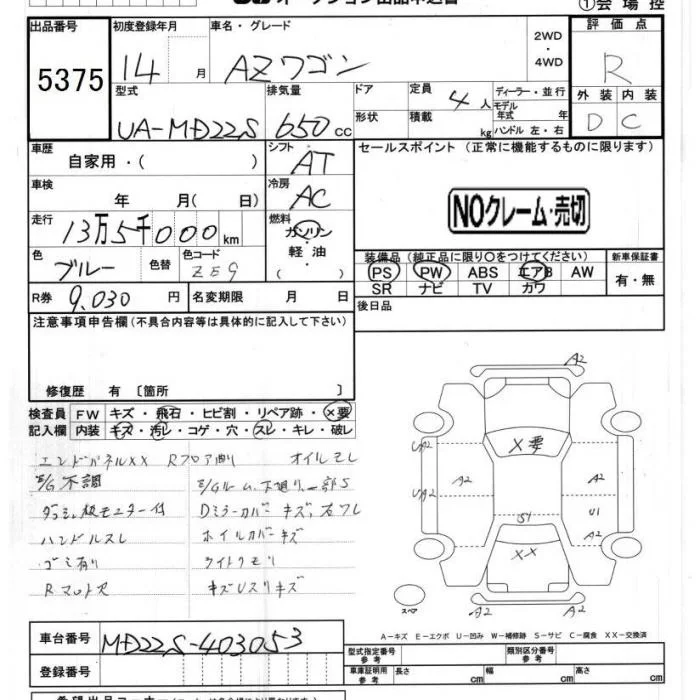 ①会場控
出品番号
5375
初度登録年月
14 月
車名・グレード
AZワゴン
2WD・4WD
評価点
R
型式
UA-MD22S
排気量
650 cc
ドア
形状
定員
4 人
積載
kg
ディーラー・並行
モデル年式 年
ハンドル 左・右
外装 内装
D C
車歴
自家用・( )
シフト
AT
車検
年 月( 日)
冷房
AC
走行
13万5千000km
燃料
ガソリン
軽油
( )
色
ブルー
色替
色コード
ZE9
R券
9,030 円
名変期限 月 日
セールスポイント (正常に機能するものに限ります)
NOクレーム・売切
装備品(純正品に限り○をつけてください)
新車保証書
PS PW ABS エアB AW
SR ナビ TV カワ
有・無
後日品
注意事項申告欄(不具合内容等は具体的に記入して下さい)
修復歴 有 〔箇所 〕
検査員記入欄
FW キズ・飛石・ヒビ割・リペア跡・×要
内装 キズ・汚レ・コゲ・穴・スレ・キレ・破レ
エンドパネルXX Rフロア曲り オイルモレ
E/G不調
E/Gルーム、下廻り一部S
ダッシュ板モニター付
Dミラーカバーキズ、右フレ
ハンドルスレ
ホイルカバーキズ
ゴミ有り
ライトクモリ
Rマット欠
キズUスリキズ
A2
UA2
X要
UA2
A2
A2
U1
S1
A2
XX
スペア
A2
A2
A-キズ E-エクボ U-凹み W-補修跡 S-サビ C-腐食 XX-交換済
車台番号
MD22S-403053
登録番号
型式指定番号 参考
類別区分番号 参考
車庫証明用 参考
長さ cm
幅 cm
高さ cm